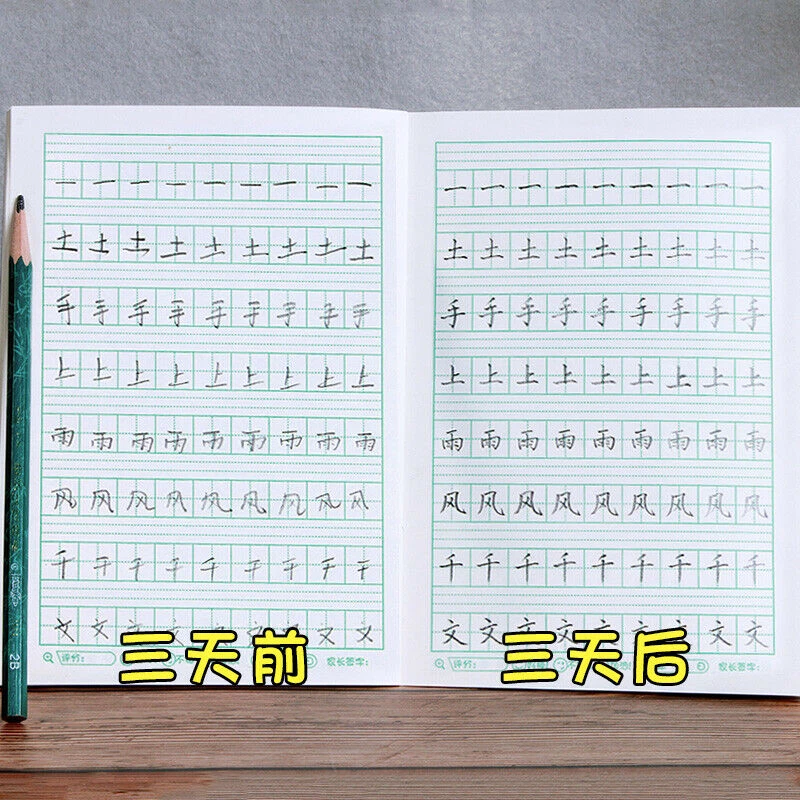 一 一 一 一 一 一 一 一 一
土 土 土 土 土 土 土 土 土
手 手 手 手 手 手 手 手 手
上 上 上 上 上 上 上 上 上
雨 雨 雨 雨 雨 雨 雨 雨 雨
风 风 风 风 风 风 风 风 风
千 千 千 千 千 千 千 千 千
文 文 文 文 文 文 文 文 文
评分:
家长签字:
三天前
一 一 一 一 一 一 一 一 一
土 土 土 土 土 土 土 土 土
手 手 手 手 手 手 手 手 手
上 上 上 上 上 上 上 上 上
雨 雨 雨 雨 雨 雨 雨 雨 雨
风 风 风 风 风 风 风 风 风
千 千 千 千 千 千 千 千 千
文 文 文 文 文 文 文 文 文
评分:
家长签字:
三天后
2B